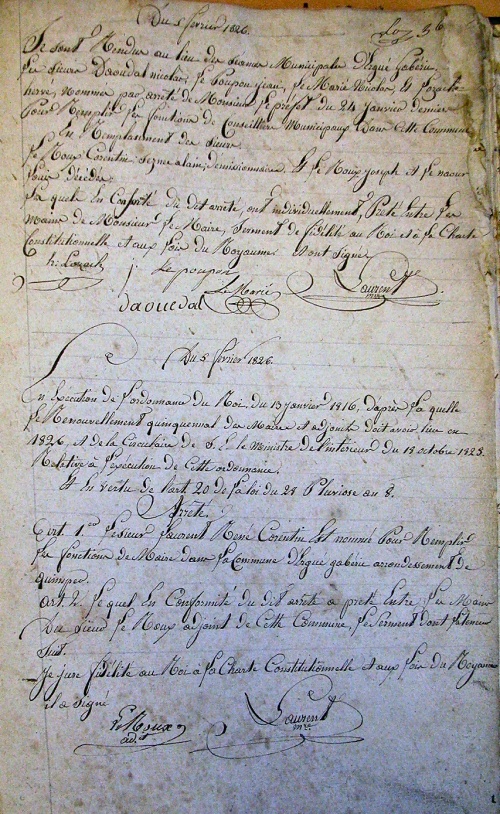 Du 5 février 1826.
36
Se sont Rendus au lieu des séance Municipale d'Ergué gabéric
Les sieurs Daoudal nicolas, le poupon jean, le Marie Nicolas, et Lozach
herve, nommés par arreté de Monsieur le préfet du 24 janvier dernier
Pour Remplir les fonctions de Conseillers Municipaux dans Cette Commune
En Remplacement des sieurs
Le Roux Corentin, alain, démissionnaires. Et Le Roux joseph et Le naour
décédés.
Les quels En Conformité du dit arreté, ont individuellement, Prêté Entre les
mains de Monsieur le Maire, Serment de fidélité au Roi et à la Charte
Constitutionnelle et aux lois du Royaume. Et ont Signé
h: Lozach j: Le poupon Le Marié Laurent
daouedal
Du 5 février 1826.
En Execution de l'ordonnance du Roi, du 13 janvier 1816, d'après la quelle
le Renouvellement quinquennal des Maires et adjoints doit avoir lieu en
1826, et de la Circulaire de S. E. le ministre de l'interieur du 18 octobre 1825.
Relative à l'execution de Cette ordonnance.
Et En vertu de l'art. 20 de la loi du 28 Pluviose an 8.
Arrete.
art. 1er Le sieur Laurent René Corentin Est nommé Pour Remplir
les fonctions de Maire dans la Commune d'Ergué gabéric arrondissement de
quimper.
art. 2. Le quel En Conformité du dit arreté a prêté Entre les Mains
Du sieur le Roux adjoint de Cette Commune, le Serment dont la teneur
suit.
Je jure fidélité au Roi à la Charte Constitutionnelle et aux lois du Royaume
et a signé
Le Roux Laurent
ad. mre